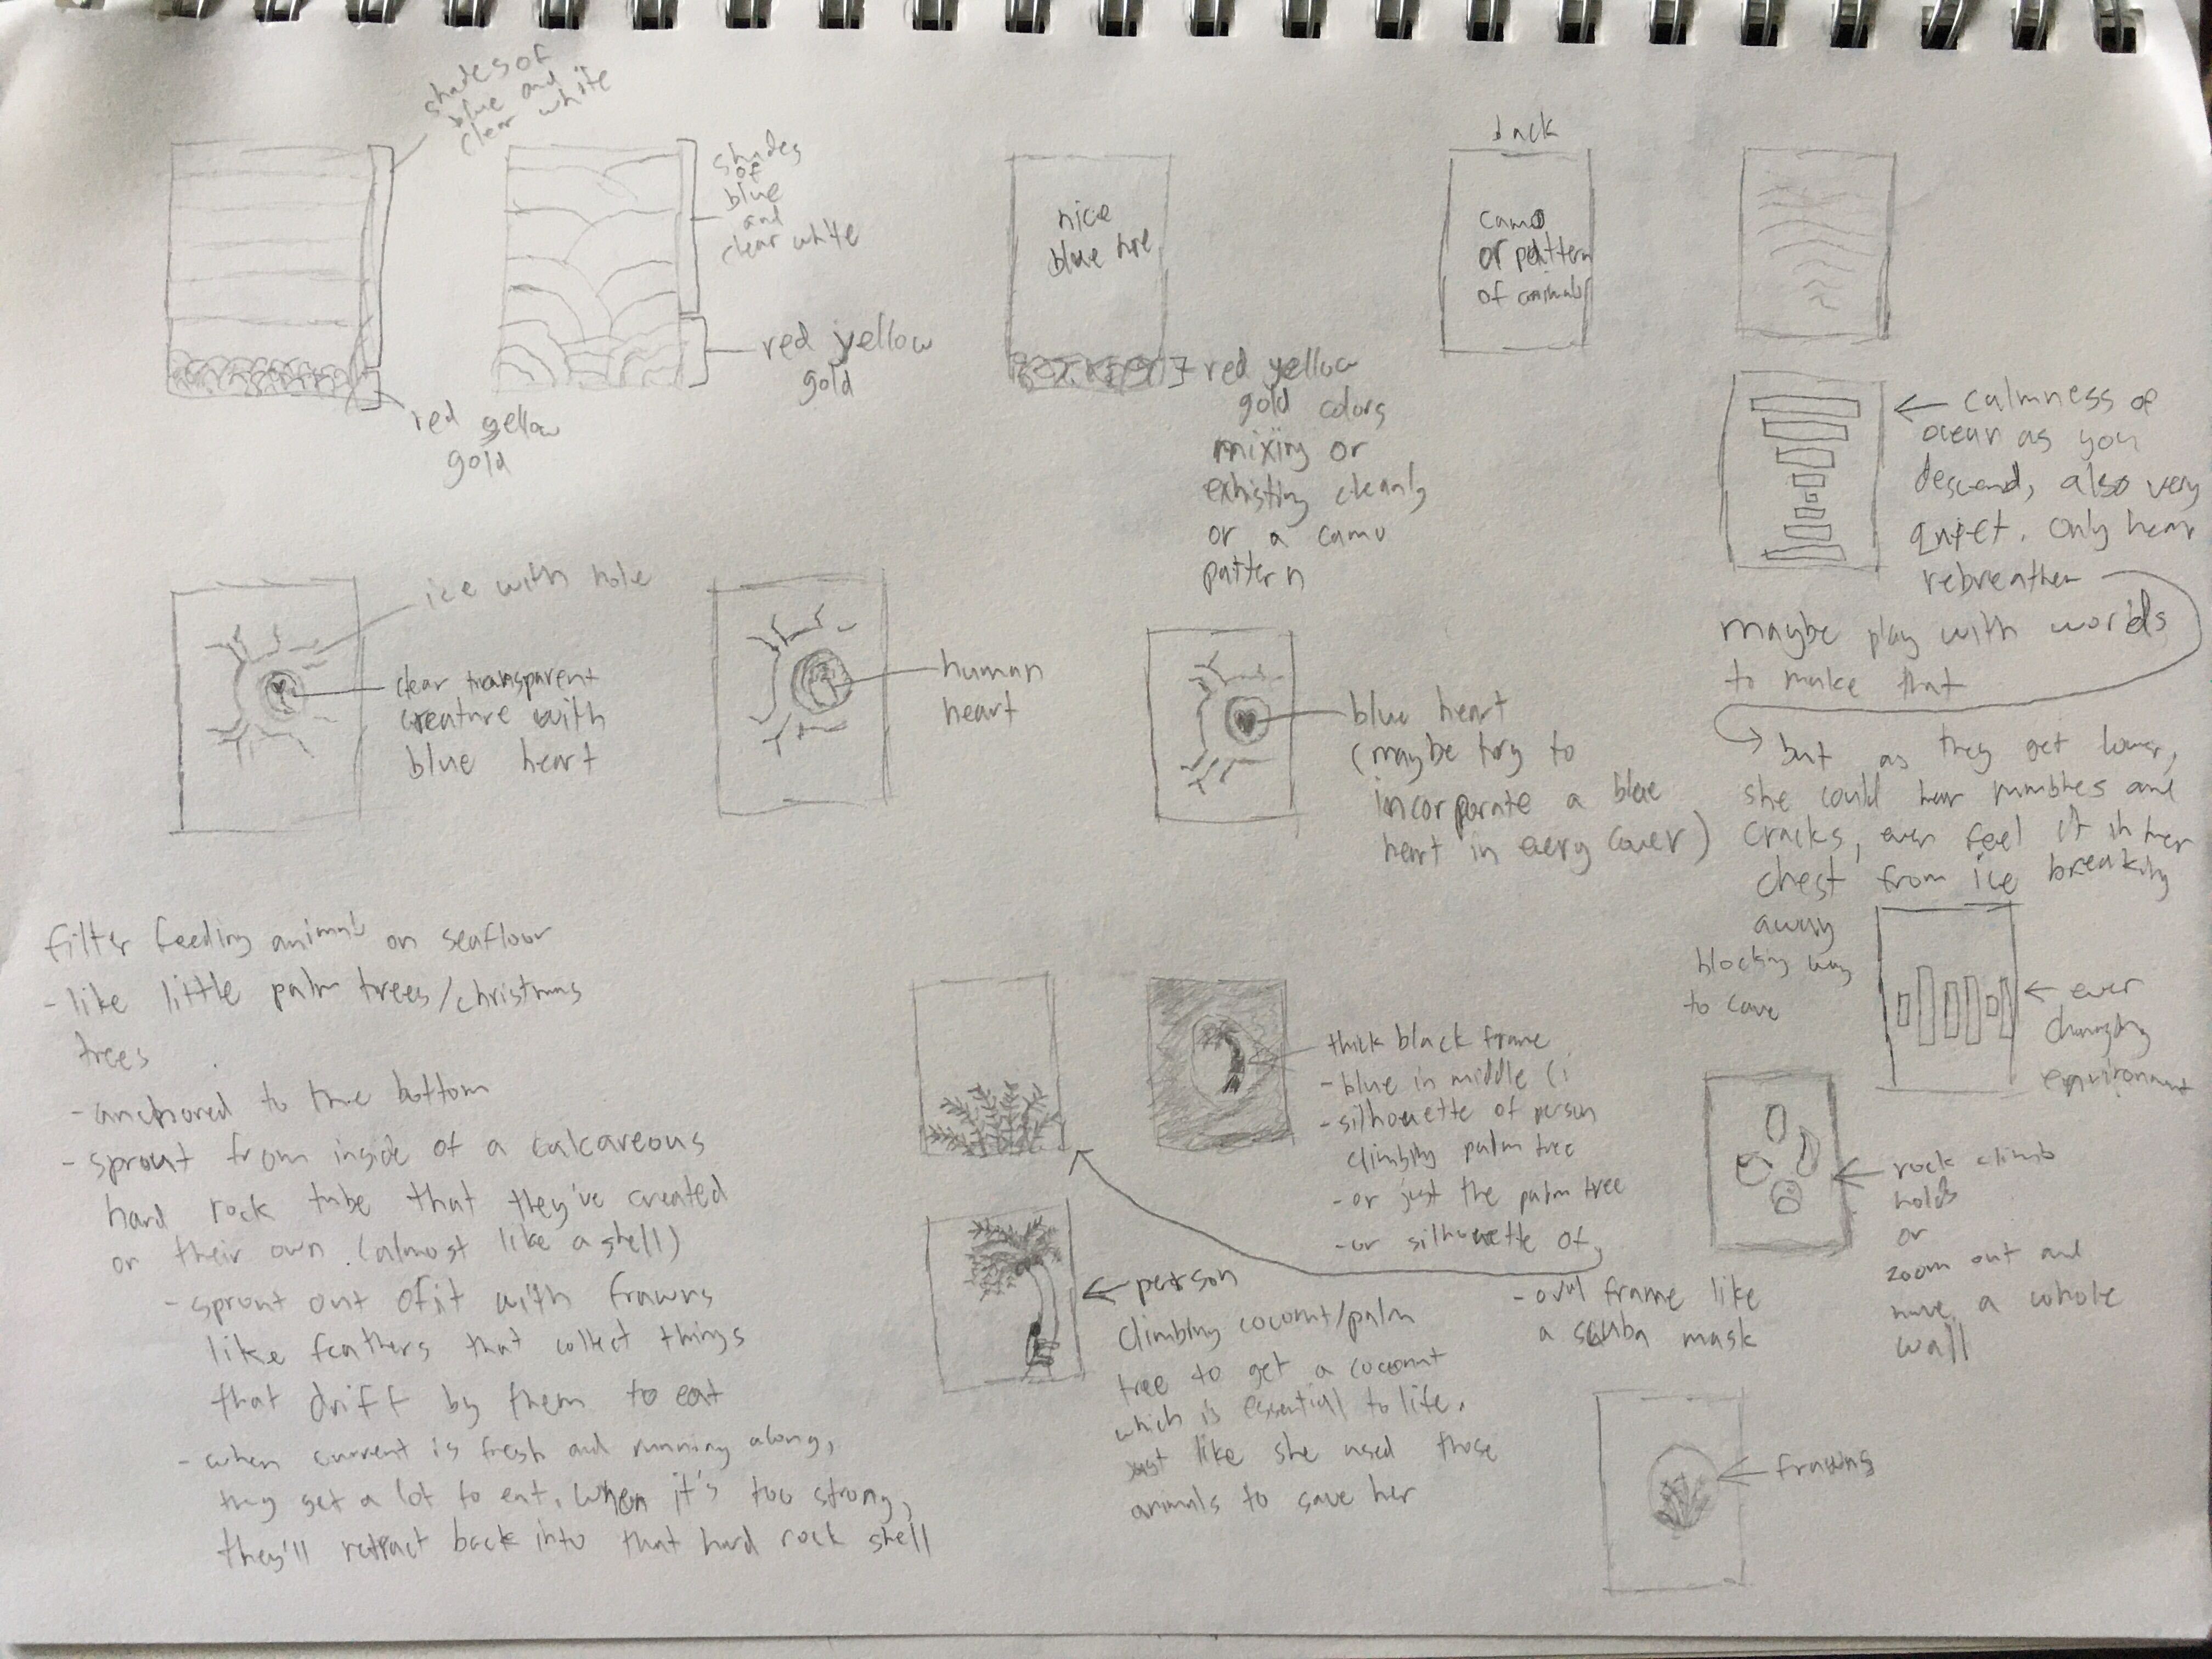 shades of
blue and
clear white
red yellow
gold
shades
of
blue
and
clear white
red yellow
gold
nice
blue hue
red yellow
gold colors
mixing or
exhisting cleanly
or a camo
pattern
back
camo
or pattern
of animals
calmness of
ocean as you
descend, also very
quiet. only hear
rebreather
maybe play with words
to make that
but as they get lower,
she could hear rumbles and
cracks, even feel it in her
chest from ice breaking
away
blocking way
to cave
ice with hole
clear transparent
creature with
blue heart
human
heart
blue heart
(maybe try to
incorporate a blue
heart in every cover)
filter feeding animals on seafloor
- like little palm trees/christmas
trees
- anchored to the bottom
- sprout from inside of a calcareous
hard rock tube that they've created
on their own (almost like a shell)
- sprout out of it with frawns
like feathers that collect things
that drift by them to eat
- when current is fresh and running along,
they get a lot to eat. when it's too strong,
they'll retract back into that hard rock shell
thick black frame
- blue in middle (i
- silhouette of person
climbing palm tree
- or just the palm tree
- or silhouette of
- oval frame like
a scuba mask
person
climbing coconut/palm
tree to get a coconut
which is essential to life.
just like she used those
animals to save her
ever
changing
environment
rock climb
holds
or
zoom out and
have a whole
wall
frawns